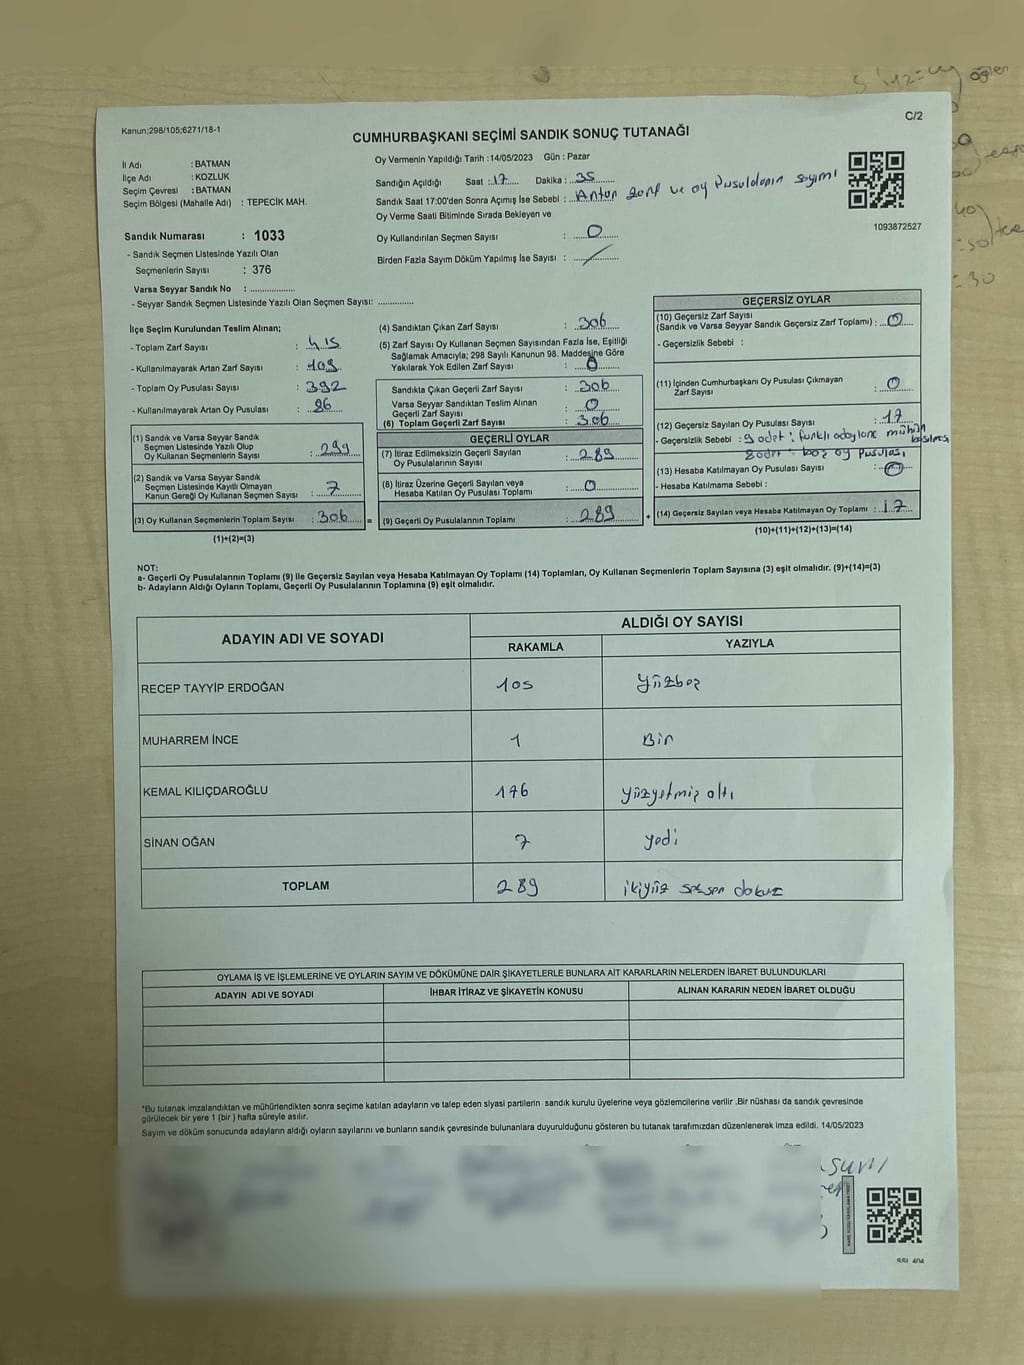 Kanun;298/105;6271/18-1
C/2
CUMHURBAŞKANI SEÇİMİ SANDIK SONUÇ TUTANAĞI
İl Adı : BATMAN
İlçe Adı : KOZLUK
Seçim Çevresi : BATMAN
Seçim Bölgesi (Mahalle Adı) : TEPECİK MAH.
Oy Vermenin Yapıldığı Tarih : 14/05/2023 Gün : Pazar
Sandığın Açıldığı Saat : 17 Dakika : 35
Sandık Saat 17:00'den Sonra Açımış İse Sebebi : ve oy Pusulalarının sayımı
Oy Verme Saati Bitiminde Sırada Bekleyen ve
Oy Kullandırılan Seçmen Sayısı : 0
Birden Fazla Sayım Döküm Yapılmış İse Sayısı : /
1093872527
Sandık Numarası : 1033
- Sandık Seçmen Listesinde Yazılı Olan
Seçmenlerin Sayısı : 376
Varsa Seyyar Sandık No : ................
- Seyyar Sandık Seçmen Listesinde Yazılı Olan Seçmen Sayısı: .............
İlçe Seçim Kurulundan Teslim Alınan;
- Toplam Zarf Sayısı : 415
- Kullanılmayarak Artan Zarf Sayısı : 109
- Toplam Oy Pusulası Sayısı : 392
- Kullanılmayarak Artan Oy Pusulası : 86
(1) Sandık ve Varsa Seyyar Sandık
Seçmen Listesinde Yazılı Olup
Oy Kullanan Seçmenlerin Sayısı : 299
(2) Sandık ve Varsa Seyyar Sandık
Seçmen Listesinde Kayıtlı Olmayan
Kanun Gereği Oy Kullanan Seçmen Sayısı : 7
(3) Oy Kullanan Seçmenlerin Toplam Sayısı : 306
(1)+(2)=(3)
(4) Sandıktan Çıkan Zarf Sayısı : 306
(5) Zarf Sayısı Oy Kullanan Seçmen Sayısından Fazla İse, Eşitliği
Sağlamak Amacıyla; 298 Sayılı Kanunun 98. Maddesine Göre
Yakılarak Yok Edilen Zarf Sayısı : 0
Sandıkta Çıkan Geçerli Zarf Sayısı : 306
Varsa Seyyar Sandıktan Teslim Alınan
Geçerli Zarf Sayısı : 0
(6) Toplam Geçerli Zarf Sayısı : 306
GEÇERLİ OYLAR
(7) İtiraz Edilmeksizin Geçerli Sayılan
Oy Pusulalarının Sayısı : 289
(8) İtiraz Üzerine Geçerli Sayılan veya
Hesaba Katılan Oy Pusulası Toplamı : 0
= (9) Geçerli Oy Pusulalarının Toplamı : 289
GEÇERSİZ OYLAR
(10) Geçersiz Zarf Sayısı
(Sandık ve Varsa Seyyar Sandık Geçersiz Zarf Toplamı) : 0
- Geçersizlik Sebebi :
(11) İçinden Cumhurbaşkanı Oy Pusulası Çıkmayan
Zarf Sayısı : 0
(12) Geçersiz Sayılan Oy Pusulası Sayısı : 17
- Geçersizlik Sebebi : 9 adet : farklı adaylara mühür basılması
8 adet : boş oy pusulası
(13) Hesaba Katılmayan Oy Pusulası Sayısı : 0
- Hesaba Katılmama Sebebi :
+ (14) Geçersiz Sayılan veya Hesaba Katılmayan Oy Toplamı : 17
(10)+(11)+(12)+(13)=(14)
NOT:
a- Geçerli Oy Pusulalarının Toplamı (9) ile Geçersiz Sayılan veya Hesaba Katılmayan Oy Toplamı (14) Toplamları, Oy Kullanan Seçmenlerin Toplam Sayısına (3) eşit olmalıdır. (9)+(14)=(3)
b- Adayların Aldığı Oyların Toplamı, Geçerli Oy Pusulalarının Toplamına (9) eşit olmalıdır.
ADAYIN ADI VE SOYADI
ALDIĞI OY SAYISI
RAKAMLA YAZIYLA
RECEP TAYYİP ERDOĞAN 105 yüzbeş
MUHARREM İNCE 1 Bir
KEMAL KILIÇDAROĞLU 176 yüzyetmiş altı
SİNAN OĞAN 7 yedi
TOPLAM 289 ikiyüz seksen dokuz
OYLAMA İŞ VE İŞLEMLERİNE VE OYLARIN SAYIM VE DÖKÜMÜNE DAİR ŞİKAYETLERLE BUNLARA AİT KARARLARIN NELERDEN İBARET BULUNDUKLARI
ADAYIN ADI VE SOYADI İHBAR İTİRAZ VE ŞİKAYETİN KONUSU ALINAN KARARIN NEDEN İBARET OLDUĞU
*Bu tutanak imzalandıktan ve mühürlendikten sonra seçime katılan adayların ve talep eden siyasi partilerin sandık kurulu üyelerine veya gözlemcilerine verilir .Bir nüshası da sandık çevresinde
görülecek bir yere 1 (bir ) hafta süreyle asılır.
Sayım ve döküm sonucunda adayların aldığı oyların sayılarını ve bunların sandık çevresinde bulunanlara duyurulduğunu gösteren bu tutanak tarafımızdan düzenlenerek imza edildi. 14/05/2023